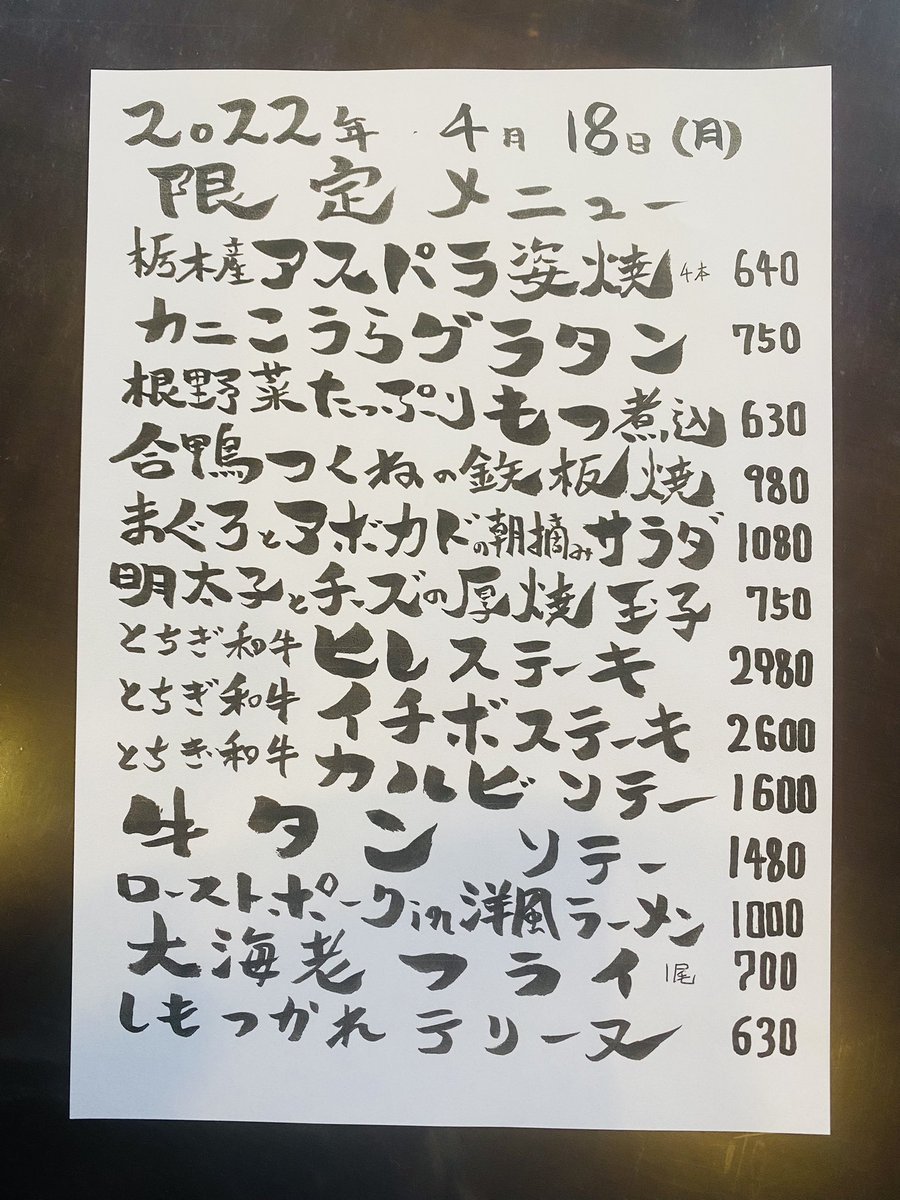 2022年 4月 18日(月)
限定メニュー
栃木産アスパラ姿焼 4本 640
カニこうらグラタン 750
根野菜たっぷりもつ煮込 630
合鴨つくねの鉄板焼 980
まぐろとアボカドの朝摘みサラダ 1080
明太子とチーズの厚焼玉子 750
とちぎ和牛 ヒレステーキ 2980
とちぎ和牛 イチボステーキ 2600
とちぎ和牛 カルビソテー 1600
牛タン ソテー 1480
ローストポークin洋風ラーメン 1000
大海老フライ 1尾 700
しもつかれテリーヌ 630